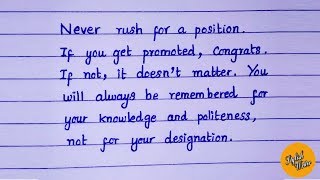 Never rush for a position.
If you get promoted, Congrats.
If not, it doesn't matter. You
will always be remembered for
your knowledge and politeness,
not for your designation.